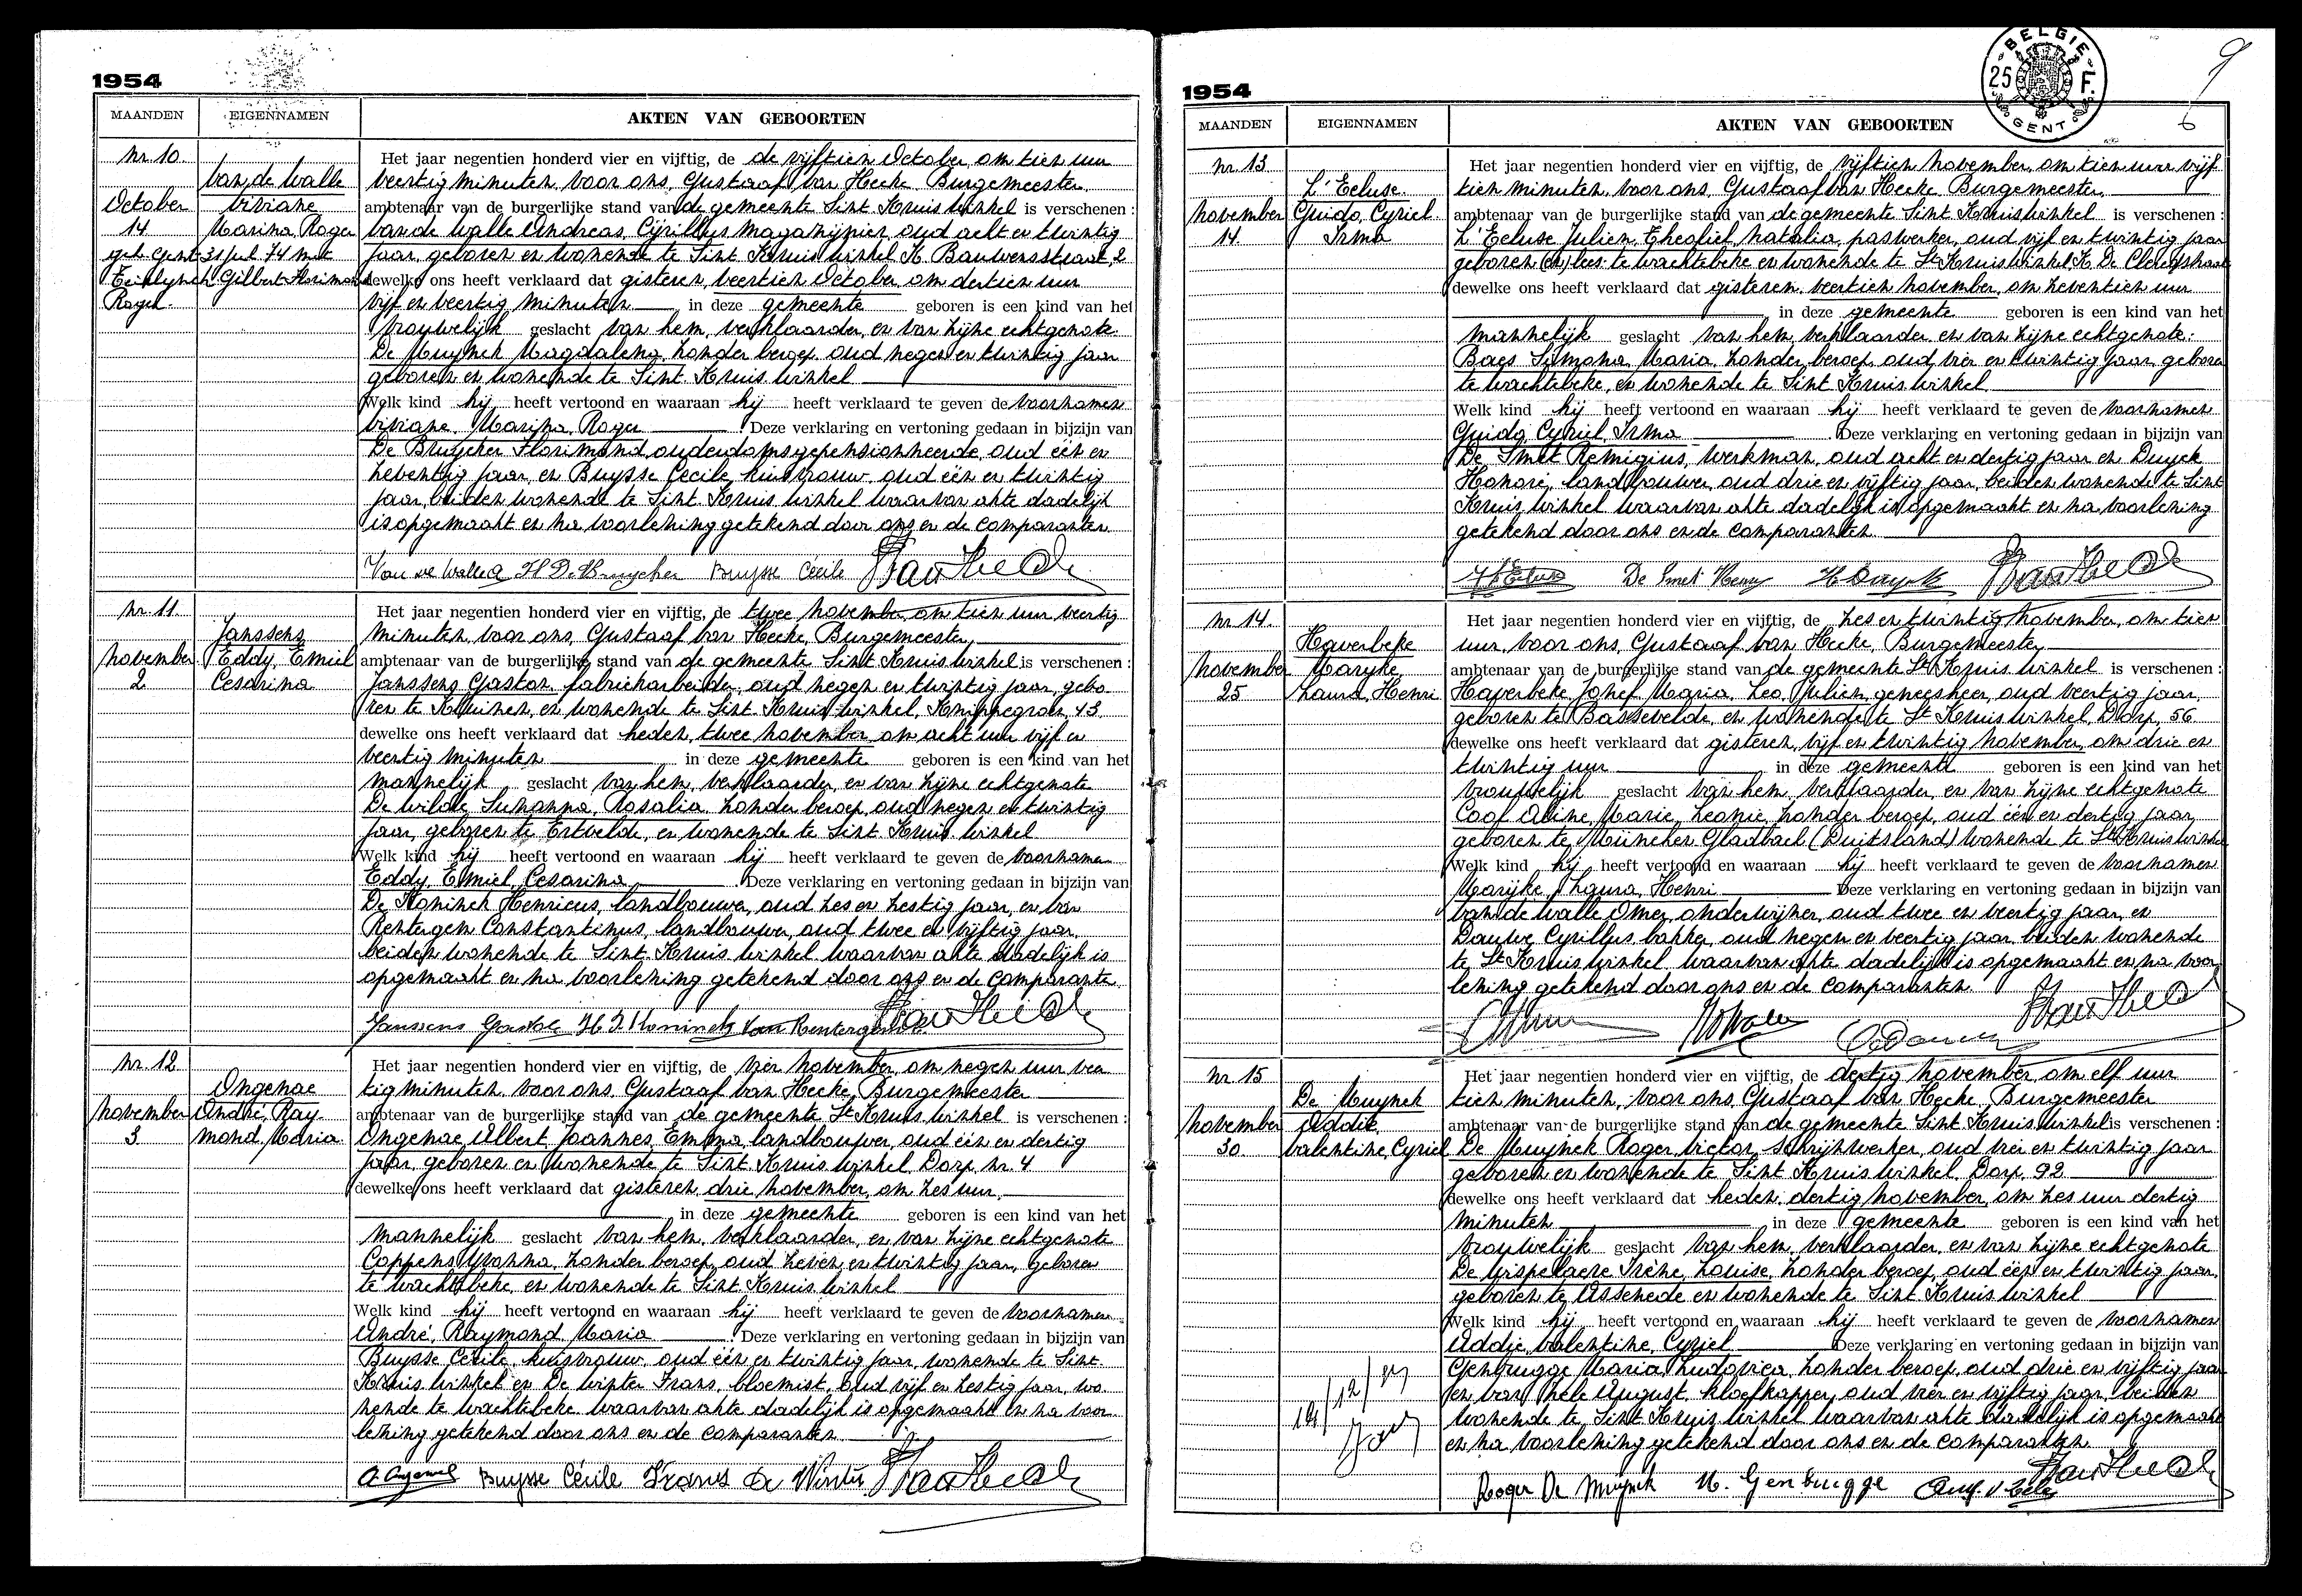 1954
MAANDEN EIGENNAMEN AKTEN VAN GEBOORTEN
Nr. 10. Het jaar negentien honderd vier en vijftig, de de vijftien October, om tien uur
Van de Walle veertig minuten voor ons, Gustaaf Van Hecke Burgemeester
October Viviane ambtenaar van de burgerlijke stand van de gemeente Sint Kruis Winkel is verschenen :
14 Marina, Roger Van de Walle Andreas, Cyrillus magazynier, oud acht en twintig
geh. Gent 31 jul 74 met jaar, geboren en wonende te Sint Kruis Winkel K. Bauwersstraat, 2
Gilbert Florimond dewelke ons heeft verklaard dat gisteren, veertien October om dertien uur
Roger. vijf en veertig minuten in deze gemeente geboren is een kind van het
vrouwelijk geslacht van hem, verklaarder, en van zijne echtgenote
De Muynck Magdalena, zonder beroep, oud negen en twintig jaar
geboren en wonende te Sint Kruis Winkel
Welk kind hij heeft vertoond en waaraan hij heeft verklaard te geven de voornamen
Viviane, Marina, Roger Deze verklaring en vertoning gedaan in bijzijn van
De Bruycker Florimond, ouderdomsgepensionneerde, oud één en
zeventig jaar, en Buysse Cecile, huisvrouw, oud één en twintig
jaar, beiden wonende te Sint Kruis Winkel waarvan akte dadelijk
is opgemaakt en na voorlezing getekend door ons en de comparanten
Van de Walle A De Bruycker Buysse Cécile
Nr. 11 Het jaar negentien honderd vier en vijftig, de twee november, om tien uur veertig
Janssens minuten, voor ons, Gustaaf Van Hecke, Burgemeester,
November Eddy, Emiel ambtenaar van de burgerlijke stand van de gemeente Sint Kruis Winkel is verschenen :
2 Cesarina Janssens Gaston, fabriekarbeider, oud negen en twintig jaar, gebo
ren te Kluizen, en wonende te Sint Kruis Winkel, Knippegroen, 43.
dewelke ons heeft verklaard dat heden, twee november om acht uur vijf en
veertig minuten in deze gemeente geboren is een kind van het
mannelijk geslacht van hem, verklaarder, en van zijne echtgenote
De Wilde Suzanna, Rosalia, zonder beroep, oud negen en twintig
jaar, geboren te Ertvelde, en wonende te Sint Kruis Winkel
Welk kind hij heeft vertoond en waaraan hij heeft verklaard te geven de voornamen
Eddy, Emiel, Cesarina Deze verklaring en vertoning gedaan in bijzijn van
De Koninck Henricus, landbouwer, oud zes en zestig jaar, en Van
Rentergem Constantinus, landbouwer, oud twee en vijftig jaar,
beiden wonende te Sint Kruis Winkel waarvan akte dadelijk is
opgemaakt en na voorlezing getekend door ons en de comparante
Janssens Gaston H. D. Koninck Van Rentergem
Nr. 12 Het jaar negentien honderd vier en vijftig, de vier november, om negen uur veer
Ongenae tig minuten, voor ons, Gustaaf Van Hecke, Burgemeester
November André, Ray ambtenaar van de burgerlijke stand van de gemeente St Kruis Winkel is verschenen :
3 mond, Maria Ongenae Albert, Joannes, Emma, landbouwer, oud één en dertig
jaar, geboren en wonende te Sint Kruis Winkel Dorp nr. 4
dewelke ons heeft verklaard dat gisteren drie november, om zes uur
in deze gemeente geboren is een kind van het
mannelijk geslacht van hem, verklaarder, en van zijne echtgenote
Coppens Yvonna, zonder beroep, oud zeven en twintig jaar, geboren
te Wachtebeke, en wonende te Sint Kruis Winkel
Welk kind hij heeft vertoond en waaraan hij heeft verklaard te geven de voornamen
André, Raymond, Maria Deze verklaring en vertoning gedaan in bijzijn van
Buysse Cécile, huisvrouw, oud één en twintig jaar, wonende te Sint
Kruis Winkel en De Winter Frans, bloemist, oud vijf en zestig jaar, wo
nende te Wachtebeke waarvan akte dadelijk is opgemaakt en na voor
lezing getekend door ons en de comparanten
A Ongenae Buysse Cécile Frans De Winter
1954
BELGIE 25 F. GENT
9
6
MAANDEN EIGENNAMEN AKTEN VAN GEBOORTEN
Nr. 13 Het jaar negentien honderd vier en vijftig, de vijftien november, om tien uur vijf
L'Ecluse tien minuten, voor ons, Gustaaf Van Hecke, Burgemeester
November Guido, Cyriel ambtenaar van de burgerlijke stand van de gemeente Sint Kruis Winkel is verschenen :
14 Irma L'Ecluse Julien, Theofiel, Natalia, paswerker, oud vijf en twintig jaar
geboren (en) lees te Wachtebeke en wonende te St Kruis Winkel, K. De Clercqstraat
dewelke ons heeft verklaard dat gisteren, veertien november, om zeventien uur
in deze gemeente geboren is een kind van het
mannelijk geslacht van hem, verklaarder en van zijne echtgenote:
Baes Simona, Maria, zonder beroep, oud vier en twintig jaar, geboren
te Wachtebeke, en wonende te Sint Kruis Winkel
Welk kind hij heeft vertoond en waaraan hij heeft verklaard te geven de voornamen
Guido, Cyriel, Irma Deze verklaring en vertoning gedaan in bijzijn van
De Smet Remigius, werkman, oud acht en dertig jaar en Duyck
Honoré, landbouwer, oud drie en vijftig jaar, beiden wonende te Sint
Kruis Winkel waarvan akte dadelijk is opgemaakt en na voorlezing
getekend door ons en de comparanten
De Smet Remy H Duyck
Nr. 14. Het jaar negentien honderd vier en vijftig, de zes en twintig november, om tien
Haverbeke uur, voor ons, Gustaaf Van Hecke, Burgemeester
November Maryke ambtenaar van de burgerlijke stand van de gemeente St Kruis Winkel is verschenen :
25 Laura, Henri Haverbeke Jozef, Maria, Leo, Julien, geneesheer, oud veertig jaar,
geboren te Bassevelde, en wonende te St Kruis Winkel, Dorp, 56
dewelke ons heeft verklaard dat gisteren, vijf en twintig november, om drie en
twintig uur in deze gemeente geboren is een kind van het
vrouwelijk geslacht van hem, verklaarder, en van zijne echtgenote
Cool Aline, Marie, Leonie, zonder beroep, oud één en dertig jaar,
geboren te München Gladbach (Duitsland) wonende te St Kruis Winkel
Welk kind hij heeft vertoond en waaraan hij heeft verklaard te geven de voornamen
Marijke, Laura, Henri Deze verklaring en vertoning gedaan in bijzijn van
Van de Walle Omer, onderwijzer, oud twee en veertig jaar, en
Dauwe Cyrillus, bakker, oud negen en veertig jaar, beiden wonende
te St Kruis Winkel, waarvan akte dadelijk is opgemaakt en na voor
lezing getekend door ons en de comparanten
Nr. 15 Het jaar negentien honderd vier en vijftig, de dertig november, om elf uur
De Muynck tien minuten, voor ons, Gustaaf Van Hecke, Burgemeester
November Addie ambtenaar van de burgerlijke stand van de gemeente Sint Kruis Winkel is verschenen :
30 Valentine, Cyriel De Muynck Roger, Victor, schrijnwerker, oud vier en twintig jaar
geboren en wonende te Sint Kruis Winkel, Dorp, 92
dewelke ons heeft verklaard dat heden, dertig november, om zes uur dertig
minuten in deze gemeente geboren is een kind van het
vrouwelijk geslacht van hem, verklaarder, en van zijne echtgenote
De Vispelaere Irène, Louise, zonder beroep, oud één en twintig jaar,
geboren te Assenede en wonende te Sint Kruis Winkel
Welk kind hij heeft vertoond en waaraan hij heeft verklaard te geven de voornamen
Addie, Valentine, Cyriel Deze verklaring en vertoning gedaan in bijzijn van
Genbrugge Maria, Ludovica, zonder beroep, oud drie en vijftig jaar
en Van Hele August, kloefkapper, oud vier en vijftig jaar, beiden
wonende te Sint Kruis Winkel waarvan akte dadelijk is opgemaakt
en na voorlezing getekend door ons en de comparanten
Roger De Muynck M. Genbrugge Aug. V Hele